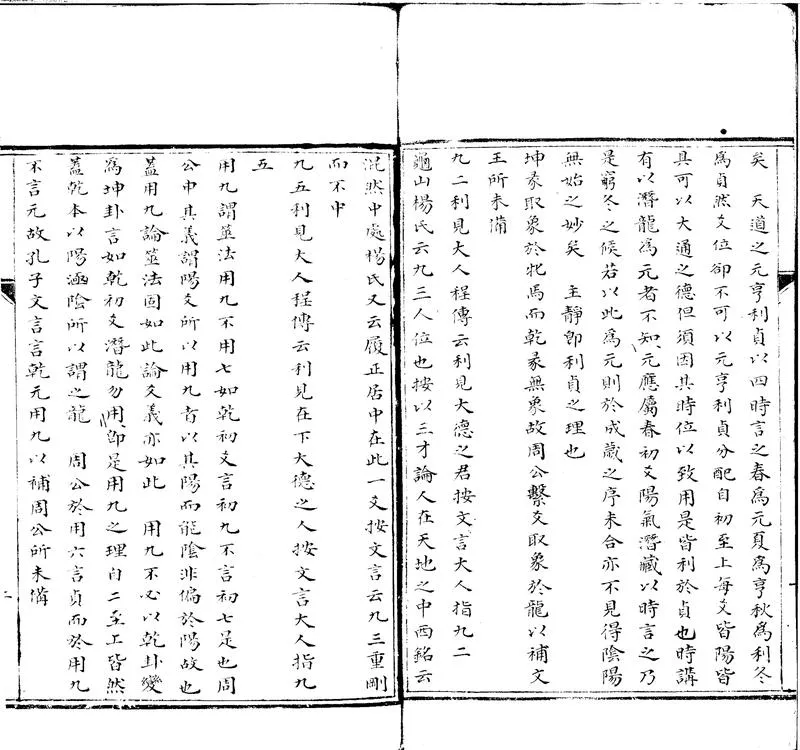 矣　天道之元亨利貞以四時言之春爲元夏爲亨秋爲利冬
爲貞然爻位卻不可以元亨利貞分配自初至上每爻皆陽皆
具可以大通之德但須因其時位以致用是皆利於貞也時講
有以潛龍爲元者不知元應屬春初爻陽氣潛藏以時言之乃
是窮冬之候若以此爲元則於成歲之序未合亦不見得陰陽
無始之妙矣　主靜卽利貞之理也
坤彖取象於牝馬而乾彖無象故周公繫爻取象於龍以補文
王所未備
九二利見大人程傳云利見大德之君按文言大人指九二
龜山楊氏云九三人位也按以三才論人在天地之中西銘云
混然中處楊氏又云履正居中在此一爻按文言云九三重剛
而不中
九五利見大人程傳云利見在下大德之人按文言大人指九
五
用九謂筮法用九不用七如乾初爻言初九不言初七是也周
公中其義謂陽爻所以用九者以其陽而能陰非偏於陽故也
蓋用九論筮法固如此論爻義亦如此　用九不必以乾卦變
爲坤卦言如乾初爻潛龍勿用卽是用九之理自二至上皆然
蓋乾本以陽涵陰所以謂之龍　周公於用六言貞而於用九
不言元故孔子文言言乾元用九以補周公所未備